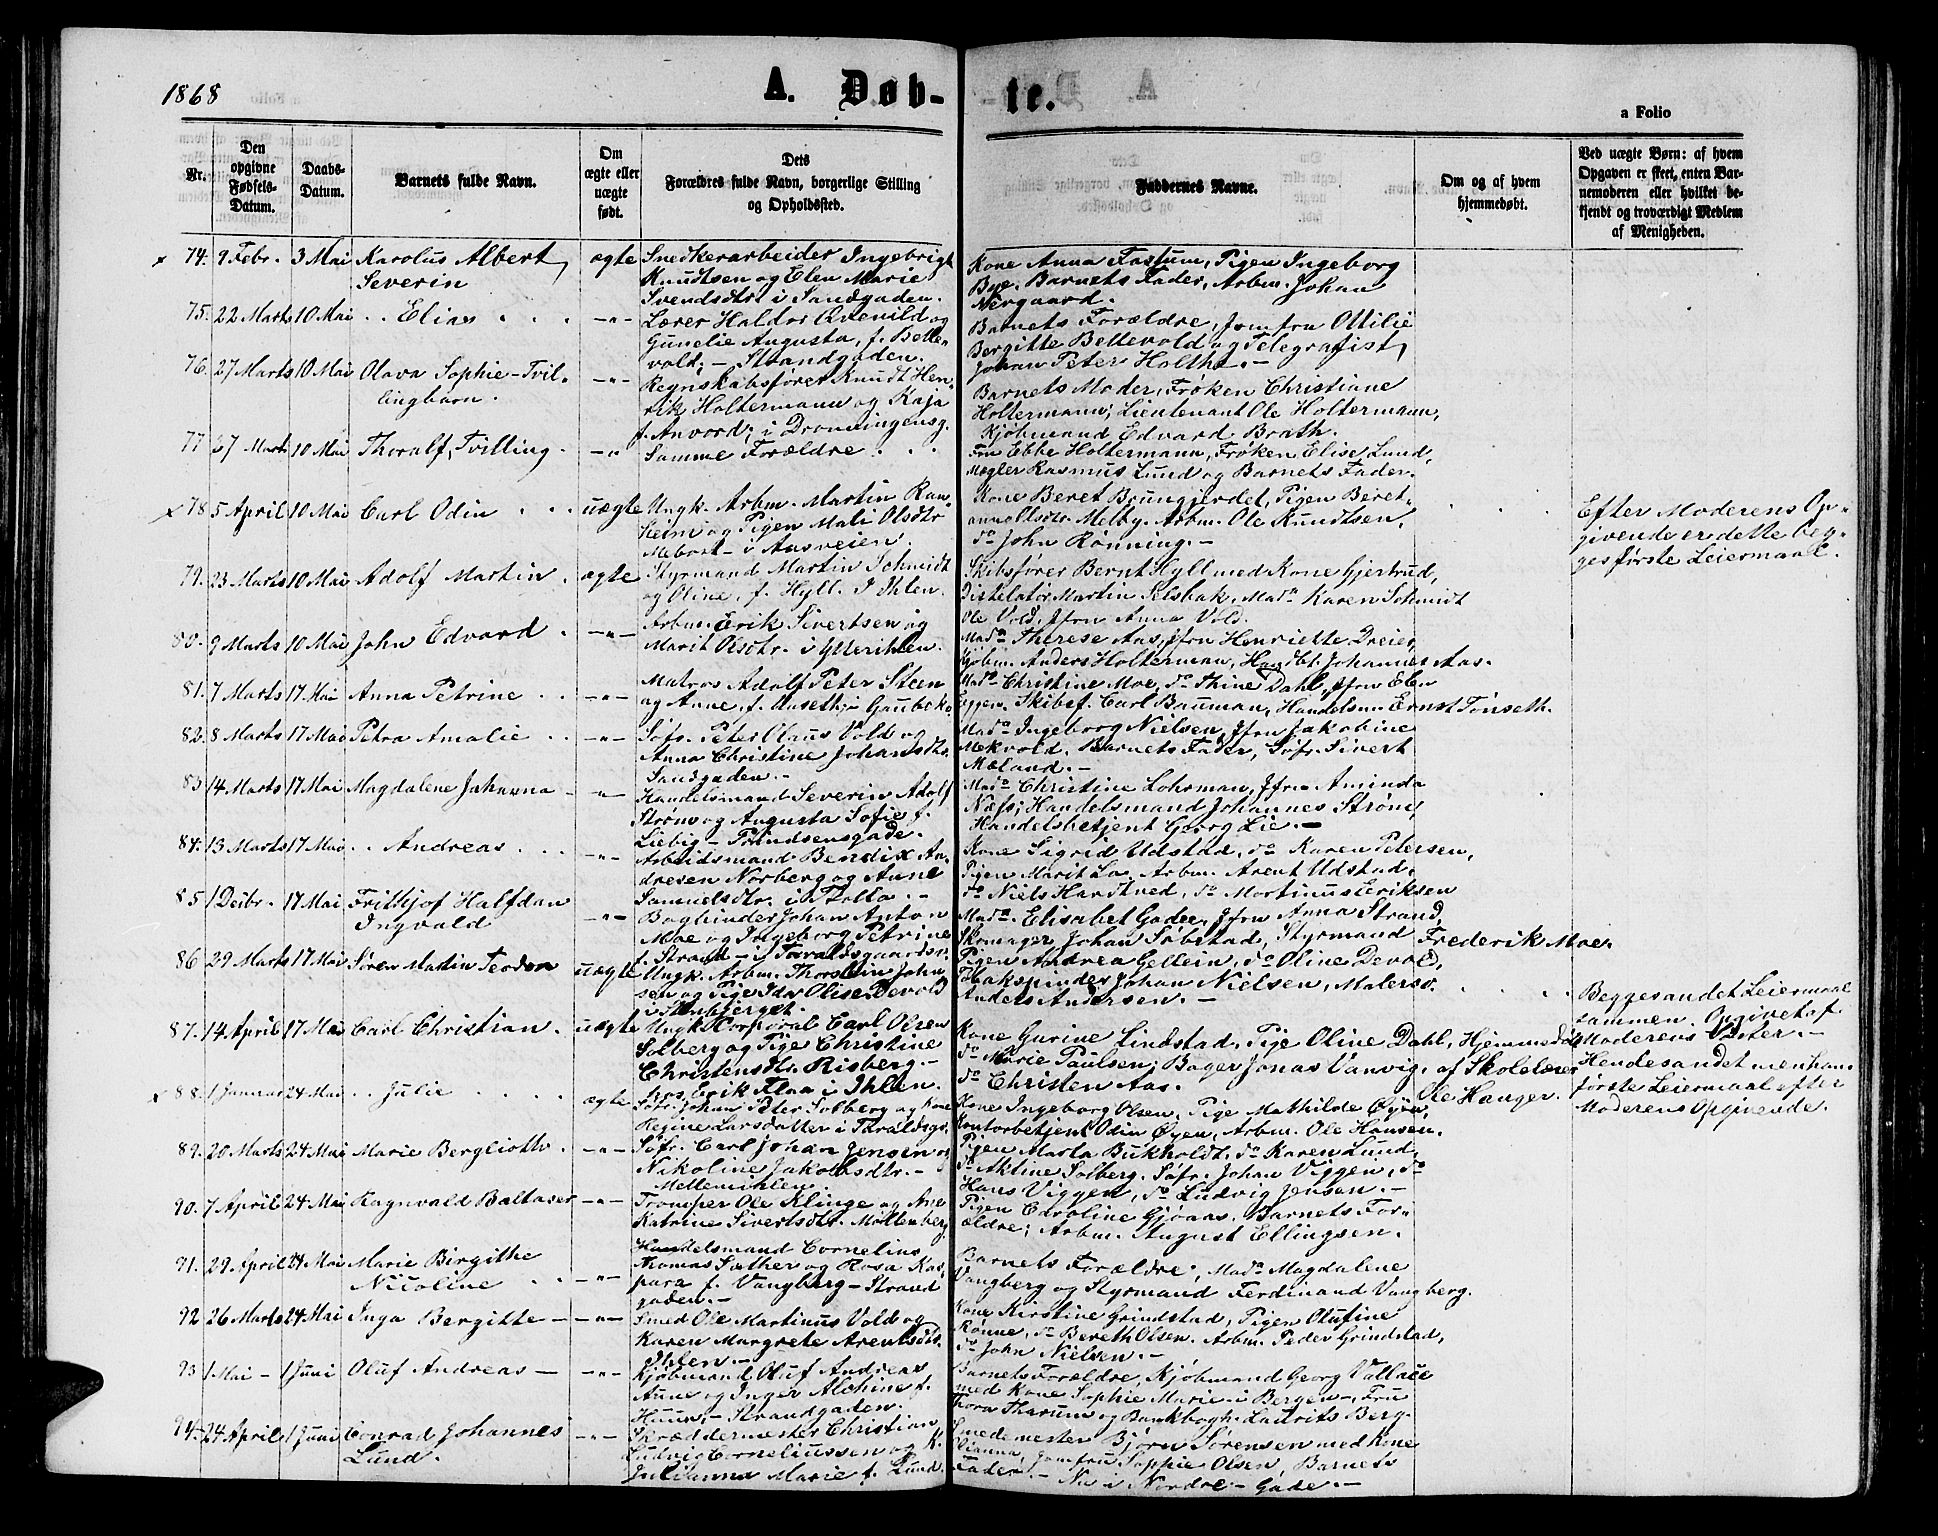 1868
A. Døb-
te.
a Folio
Nr.
Den opgivne Fødsels-Datum.
Daabs-Datum.
Barnets fulde Navn.
Om ægte eller uægte født.
Dets Forældres fulde Navn, borgerlige Stilling og Opholdssted.
Faddernes Navne.
Om og af hvem hjemmedøbt.
Ved uægte Børn: af hvem Opgaven er skeet, enten Barnemoderen eller hvilket bekjendt og troværdigt Medlem af Menigheden.
74. 9 Febr. 3 Mai Karolus Albert ægte Snedkerarbeider Ingebrigt Kone Anna Fossum, Pigen Ingeborg
Severin Knudtsen og Elen Marie Bye. Barnets Fader, Arbm. Johan
Svendsdtr. i Sandgaden. Nergaard.
75. 22 Marts 10 Mai Elias Lærer Haldor Østenild og Barnets Forældre, Jomfru Ottilie
Gunelie Augusta, f. Belle- Bergitte Bellevold og Telegrafist
vold, - Strandgaden. Johan Peter Holthe. -
76. 27 Marts 10 Mai Olava Sophie - Tvil- Regnskabsfører Knudt Hen- Barnets Moder, Frøken Christiane
lingbarn. rik Holtermann og Kaja Holtermann, Lieutenant Ole Holtermann,
f. Anvord; i Dronningensg. Kjøbmand Edvard Brath.
77 27 Marts 10 Mai Thoralf, Tvilling. Samme Forældre Fru Ebbe Holtermann, Frøken Elise Lund,
Mægler Rasmus Lund og Barnets Fader.
78 5 April 10 Mai Carl Odin uægte Ungk. Arbm. Martin Ram- Kone Beret Brungjerdet, Pigen Beret- Efter Moderens Op-
heim og Pigen Mali Olsdtr. anna Olsdtr. Melby. Arbm. Ole Knudtsen, givende er dette beg-
Mebost - i Aasveien. do John Rønning. - ges første Leiermaal.
79. 23 Marts 10 Mai Adolf Martin ægte Styrmand Martin Schmidt Skibsfører Bernt Hyll med Kone Gjertrud,
og Oline, f. Hyll. I Ihlen. Distelatør Martin Selsbak, Mada Karen Schmidt
Ole Vold, Jfru Anna Vold.
80. 9 Marts 10 Mai John Edvard Arbm. Erik Sivertsen og Mada Therese Aas, Jfru Henriette Dreier,
Marit Olsdtr. i Ytterihlen. Kjøbm. Anders Holterman, Handbt. Johannes Aas.
81. 7 Marts 17 Mai Anna Petrine Matros Adolf Peter Steen Mada Christine Moe, do Thine Dahl, Jfru Elen
og Anne, f. Aaseth i Gaubekv. Eggen. Skibsf. Carl Bauman, Handelsm. Ernst Tønseth.
82. 8 Marts 17 Mai Petra Amalie Søfr. Peter Olaus Vold og Mada Ingeborg Nielsen, Jfru Jakobine
Anna Christine Johansdtr. Mekvold, Barnets Fader, Søfr. Sivert
Sandgaden. - Mæland. -
83 14 Marts 17 Mai Magdalene Johanna Handelsmand Severin Adolf Mada Christine Lohrman, Jfru Aminda
Strøm og Augusta Sofie f. Næss; Handelsmand Johannes Strøm,
Liebig - Prindsensgade. Handelsbetjent Georg Lie. -
84. 13 Marts 17 Mai Andreas Arbeidsmand Bendix An- Kone Sigrid Udstad, do Karen Petersen,
dresen Norberg og Anne Pigen Marit Lo. Arbm. Arent Udstad,
Samuelsdtr. i Tholla. - do Niels Hardtned, do Martinus Eriksen
85 1 Decbr. 17 Mai Frithjof Halfdan Bogbinder Johan Anton Mada Elisabet Gader, Jfru Anna Strand,
Ingvald Moe og Ingeborg Petrine Skomager Johan Søbstad, Styrmand Frederik Moe.
f. Strand - i Taraldsgaardsv.
86 29 Marts 17 Mai Søren Martin Teodor uægte Ungk. Arbm. Thorstein John- Pigen Andrea Gellein, do Oline Devold,
sen og Pige Ida Olise Devold Tobakspinder Johan Nielsen, Malersv. Begges andet Leiermaal
i Stenbjerget. Anders Andersen. - sammen. Opgivet af
87. 14 April 17 Mai Carl Christian. uægte Ungk. Korporal Carl Olsen Kone Gurine Lindstad, Pige Oline Dahl, Hjemmedøbt Moderens Vært. -
Solberg og Pige Christine do Marie Paulsen; Bager Jonas Vanvig, af Skolelærer Hendes andet men hans
Christensdtr. Risberg - do Christen Aas. Ole Hauger. første Leiermaal efter
hos Erik Flaa i Ihlen. Moderens Opgivende.
88. 1 Januar 24 Mai Julie ægte Søfr. Johan Peter Solberg og Kone Kone Ingeborg Olsen, Pige Mathilde Øyen,
Regine Larsdatter i Taraldsgs. Kontorbetjent Odin Øyen, Arbm. Ole Hansen.
89. 20 Marts 24 Mai Marie Bergliotte Søfr. Carl Johan Jensen og Pigen Marta Bukholdt, do Karen Lund,
Nikoline Jakobsdtr. - do Aktine Solberg. Søfr. Johan Viggen, do
Mellemihlen. Hans Viggen, do Ludvig Jensen. -
90. 7 April 24 Mai Ragnvald Baltaser Tromper Ole Klinge og Ane Pigen Caroline Gjøaas. Barnets For-
Katrine Sivertsdtr. Møllenberg. ældre; Arbm. August Ellingsen.
91. 29 April 24 Mai Marie Birgithe Handelsmand Cornelius Barnets Forældre, Mada Magdalene
Nicoline Thomas Sæther og Rosa Kas- Vangberg og Styrmand Ferdinand Vangberg.
para f. Vangberg - Strand
gaden. -
92 26 Marts 24 Mai Inga Bergitte - Smed Ole Martinus Vold og Kone Kirstine Grindstad, Pigen Olutine
Karen Margrete Arentsdtr. Rønne, do Bereth Olsen. Arbm. Peder Grindstad,
Ihlen. - do John Nielsen. -
93 1 Mai - 1 Juni Oluf Andreas - Kjøbmand Oluf Andreas Barnets Forældre, Kjøbmand Georg Vallace
Aune og Inger Alehine f. med Kone Sophie Marie i Bergen -, Fru
Huun, - Strandgaden. Thora Tharum og Bankbogh. Laurits Berg.
94. 24 April 1 Juni Conrad Johannes Skræddermester Christian Smedemester Bjørn Sørensen med Kone
Lund. Ludvig Corneliussen og K. Vianna, Jomfru Sophie Olsen, Barnets
Julianna Marie f. Lund. Fader. - Nu i Nordre - Gade. -